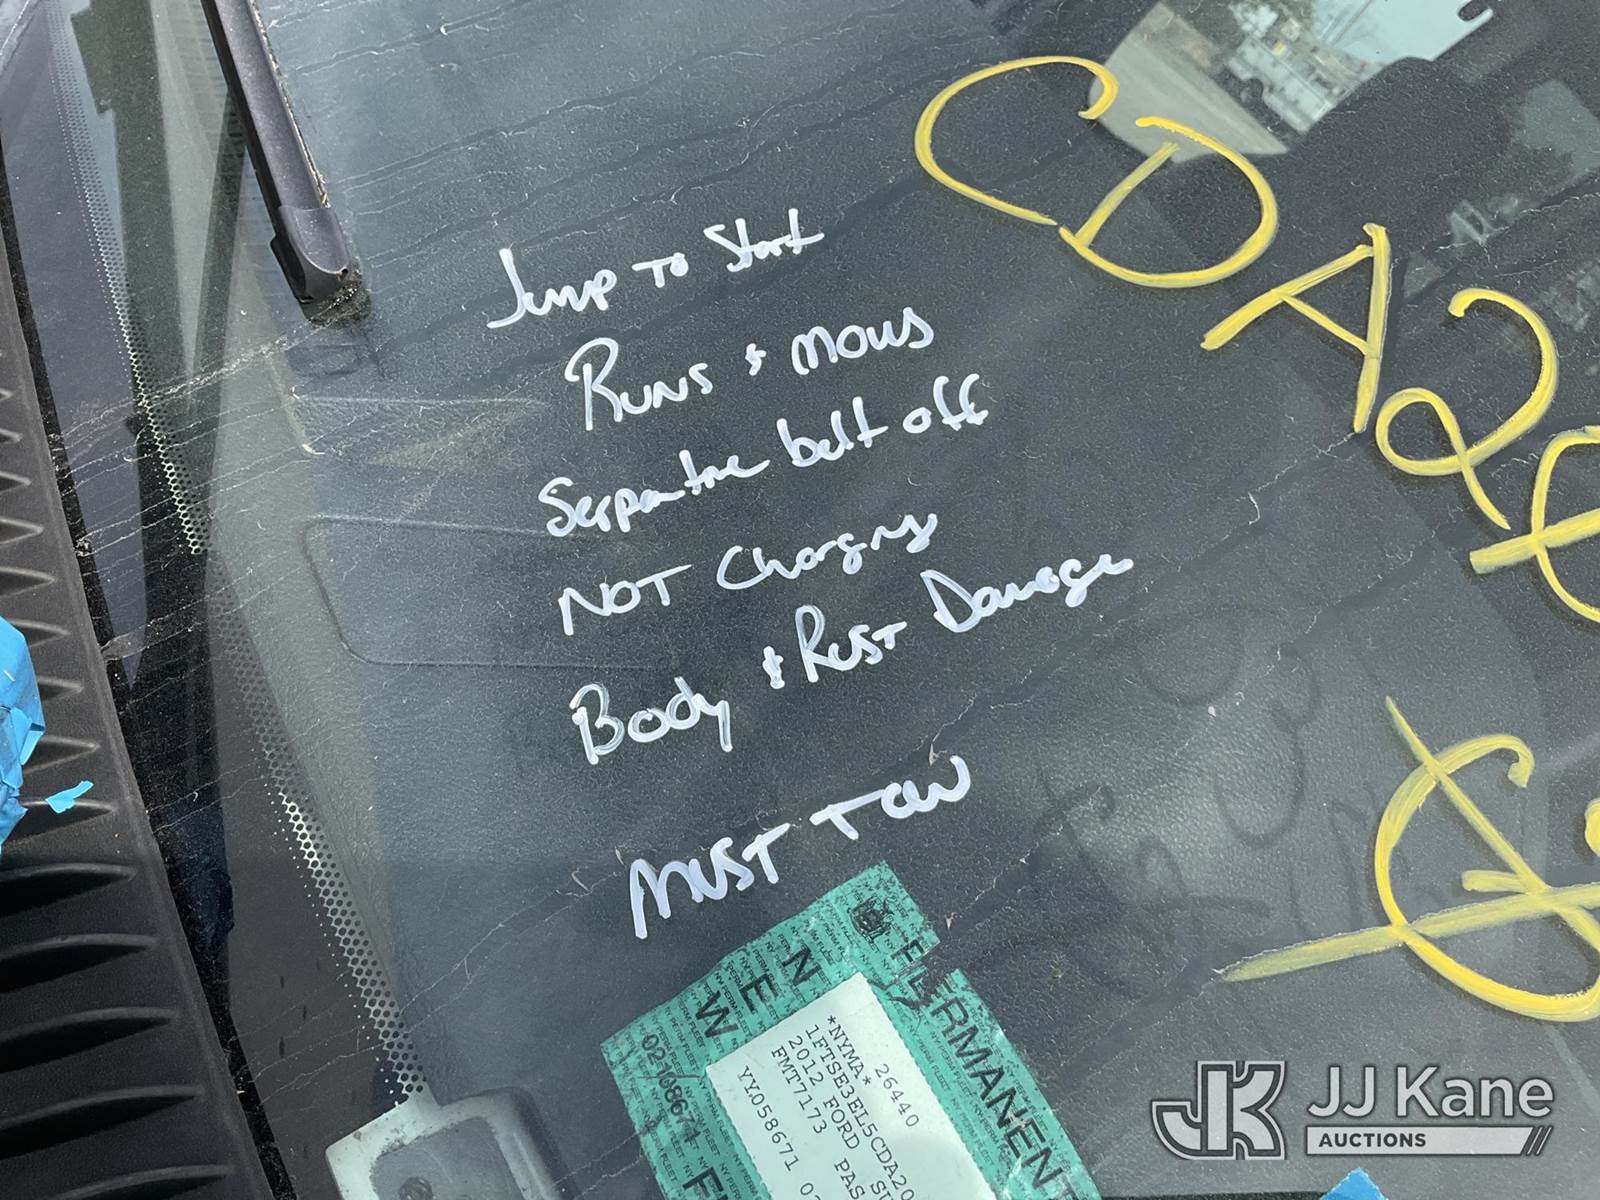 Jump To Start
Runs & Moves
Serpentine belt off
NOT Charging
Body & Rust Damage
MUST TOW
CDA20
NEW
PERMANENT
02108671
*NYMA* 26440
1FTSE3EL5CDA20
2012 FORD SU
FMT7173 PAS
YY058671 02
JJ Kane
AUCTIONS